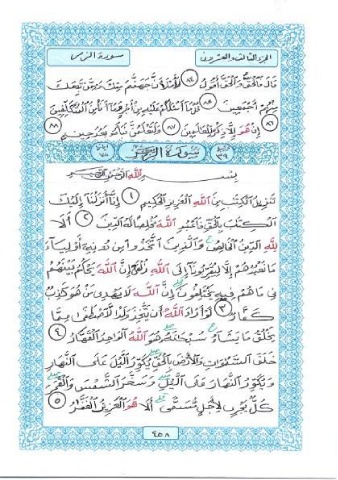 الجزء الثالث والعشرون سورة الزمر
قَالَ فَالْحَقُّ وَالْحَقَّ أَقُولُ ٨٤ لَأَمْلَأَنَّ جَهَنَّمَ مِنكَ وَمِمَّن تَبِعَكَ
مِنْهُمْ أَجْمَعِينَ ٨٥ قُلْ مَآ أَسْـَٔلُكُمْ عَلَيْهِ مِنْ أَجْرٍ وَمَآ أَنَا۠ مِنَ الْمُتَكَلِّفِينَ
٨٦ إِنْ هُوَ إِلَّا ذِكْرٌ لِّلْعَٰلَمِينَ ٨٧ وَلَتَعْلَمُنَّ نَبَأَهُۥ بَعْدَ حِينٍ ٨٨
٣٩ سُورَةُ الزُّمَرِ ٧٥
بِسْمِ اللَّهِ الرَّحْمَٰنِ الرَّحِيمِ
تَنزِيلُ الْكِتَٰبِ مِنَ اللَّهِ الْعَزِيزِ الْحَكِيمِ ١ إِنَّآ أَنزَلْنَآ إِلَيْكَ
الْكِتَٰبَ بِالْحَقِّ فَاعْبُدِ اللَّهَ مُخْلِصًا لَّهُ الدِّينَ ٢ أَلَا
لِلَّهِ الدِّينُ الْخَالِصُ وَالَّذِينَ اتَّخَذُوا۟ مِن دُونِهِۦٓ أَوْلِيَآءَ
مَا نَعْبُدُهُمْ إِلَّا لِيُقَرِّبُونَآ إِلَى اللَّهِ زُلْفَىٰٓ إِنَّ اللَّهَ يَحْكُمُ بَيْنَهُمْ
فِى مَا هُمْ فِيهِ يَخْتَلِفُونَ إِنَّ اللَّهَ لَا يَهْدِى مَنْ هُوَ كَٰذِبٌ
كَفَّارٌ ٣ لَّوْ أَرَادَ اللَّهُ أَن يَتَّخِذَ وَلَدًا لَّاصْطَفَىٰ مِمَّا
يَخْلُقُ مَا يَشَآءُ سُبْحَٰنَهُۥ هُوَ اللَّهُ الْوَٰحِدُ الْقَهَّارُ ٤
خَلَقَ السَّمَٰوَٰتِ وَالْأَرْضَ بِالْحَقِّ يُكَوِّرُ الَّيْلَ عَلَى النَّهَارِ
وَيُكَوِّرُ النَّهَارَ عَلَى الَّيْلِ وَسَخَّرَ الشَّمْسَ وَالْقَمَرَ
كُلٌّ يَجْرِى لِأَجَلٍ مُّسَمًّى أَلَا هُوَ الْعَزِيزُ الْغَفَّٰرُ ٥
٤٥٨